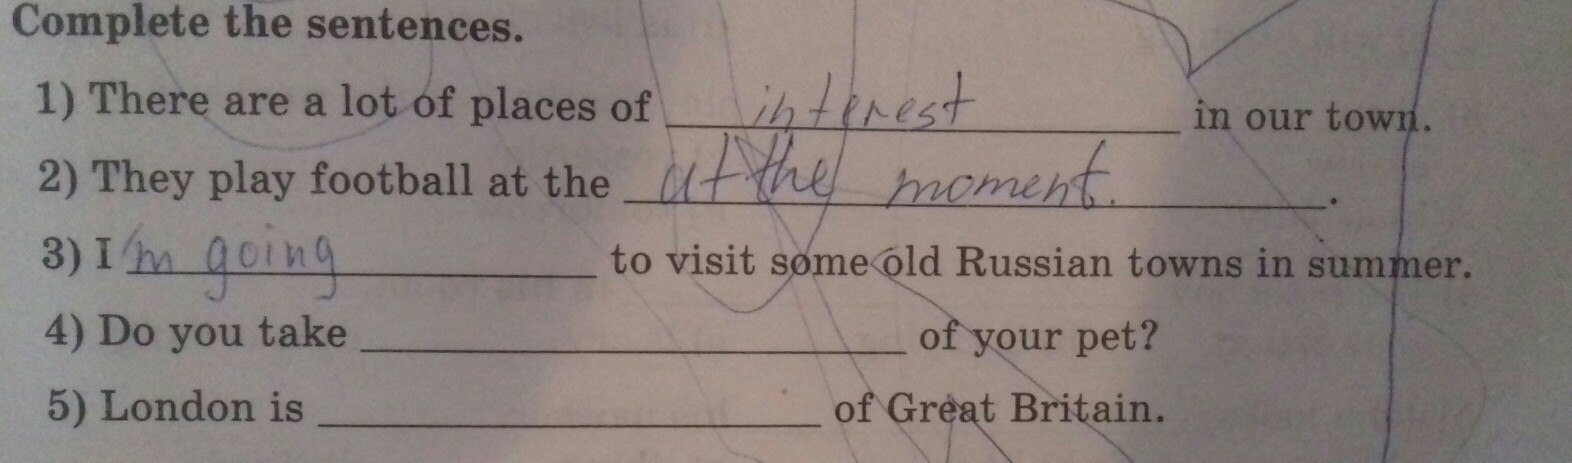 Complete the sentences.
1) There are a lot of places of interest in our town.
2) They play football at the at the moment. .
3) I'm going to visit some old Russian towns in summer.
4) Do you take ______ of your pet?
5) London is ______ of Great Britain.